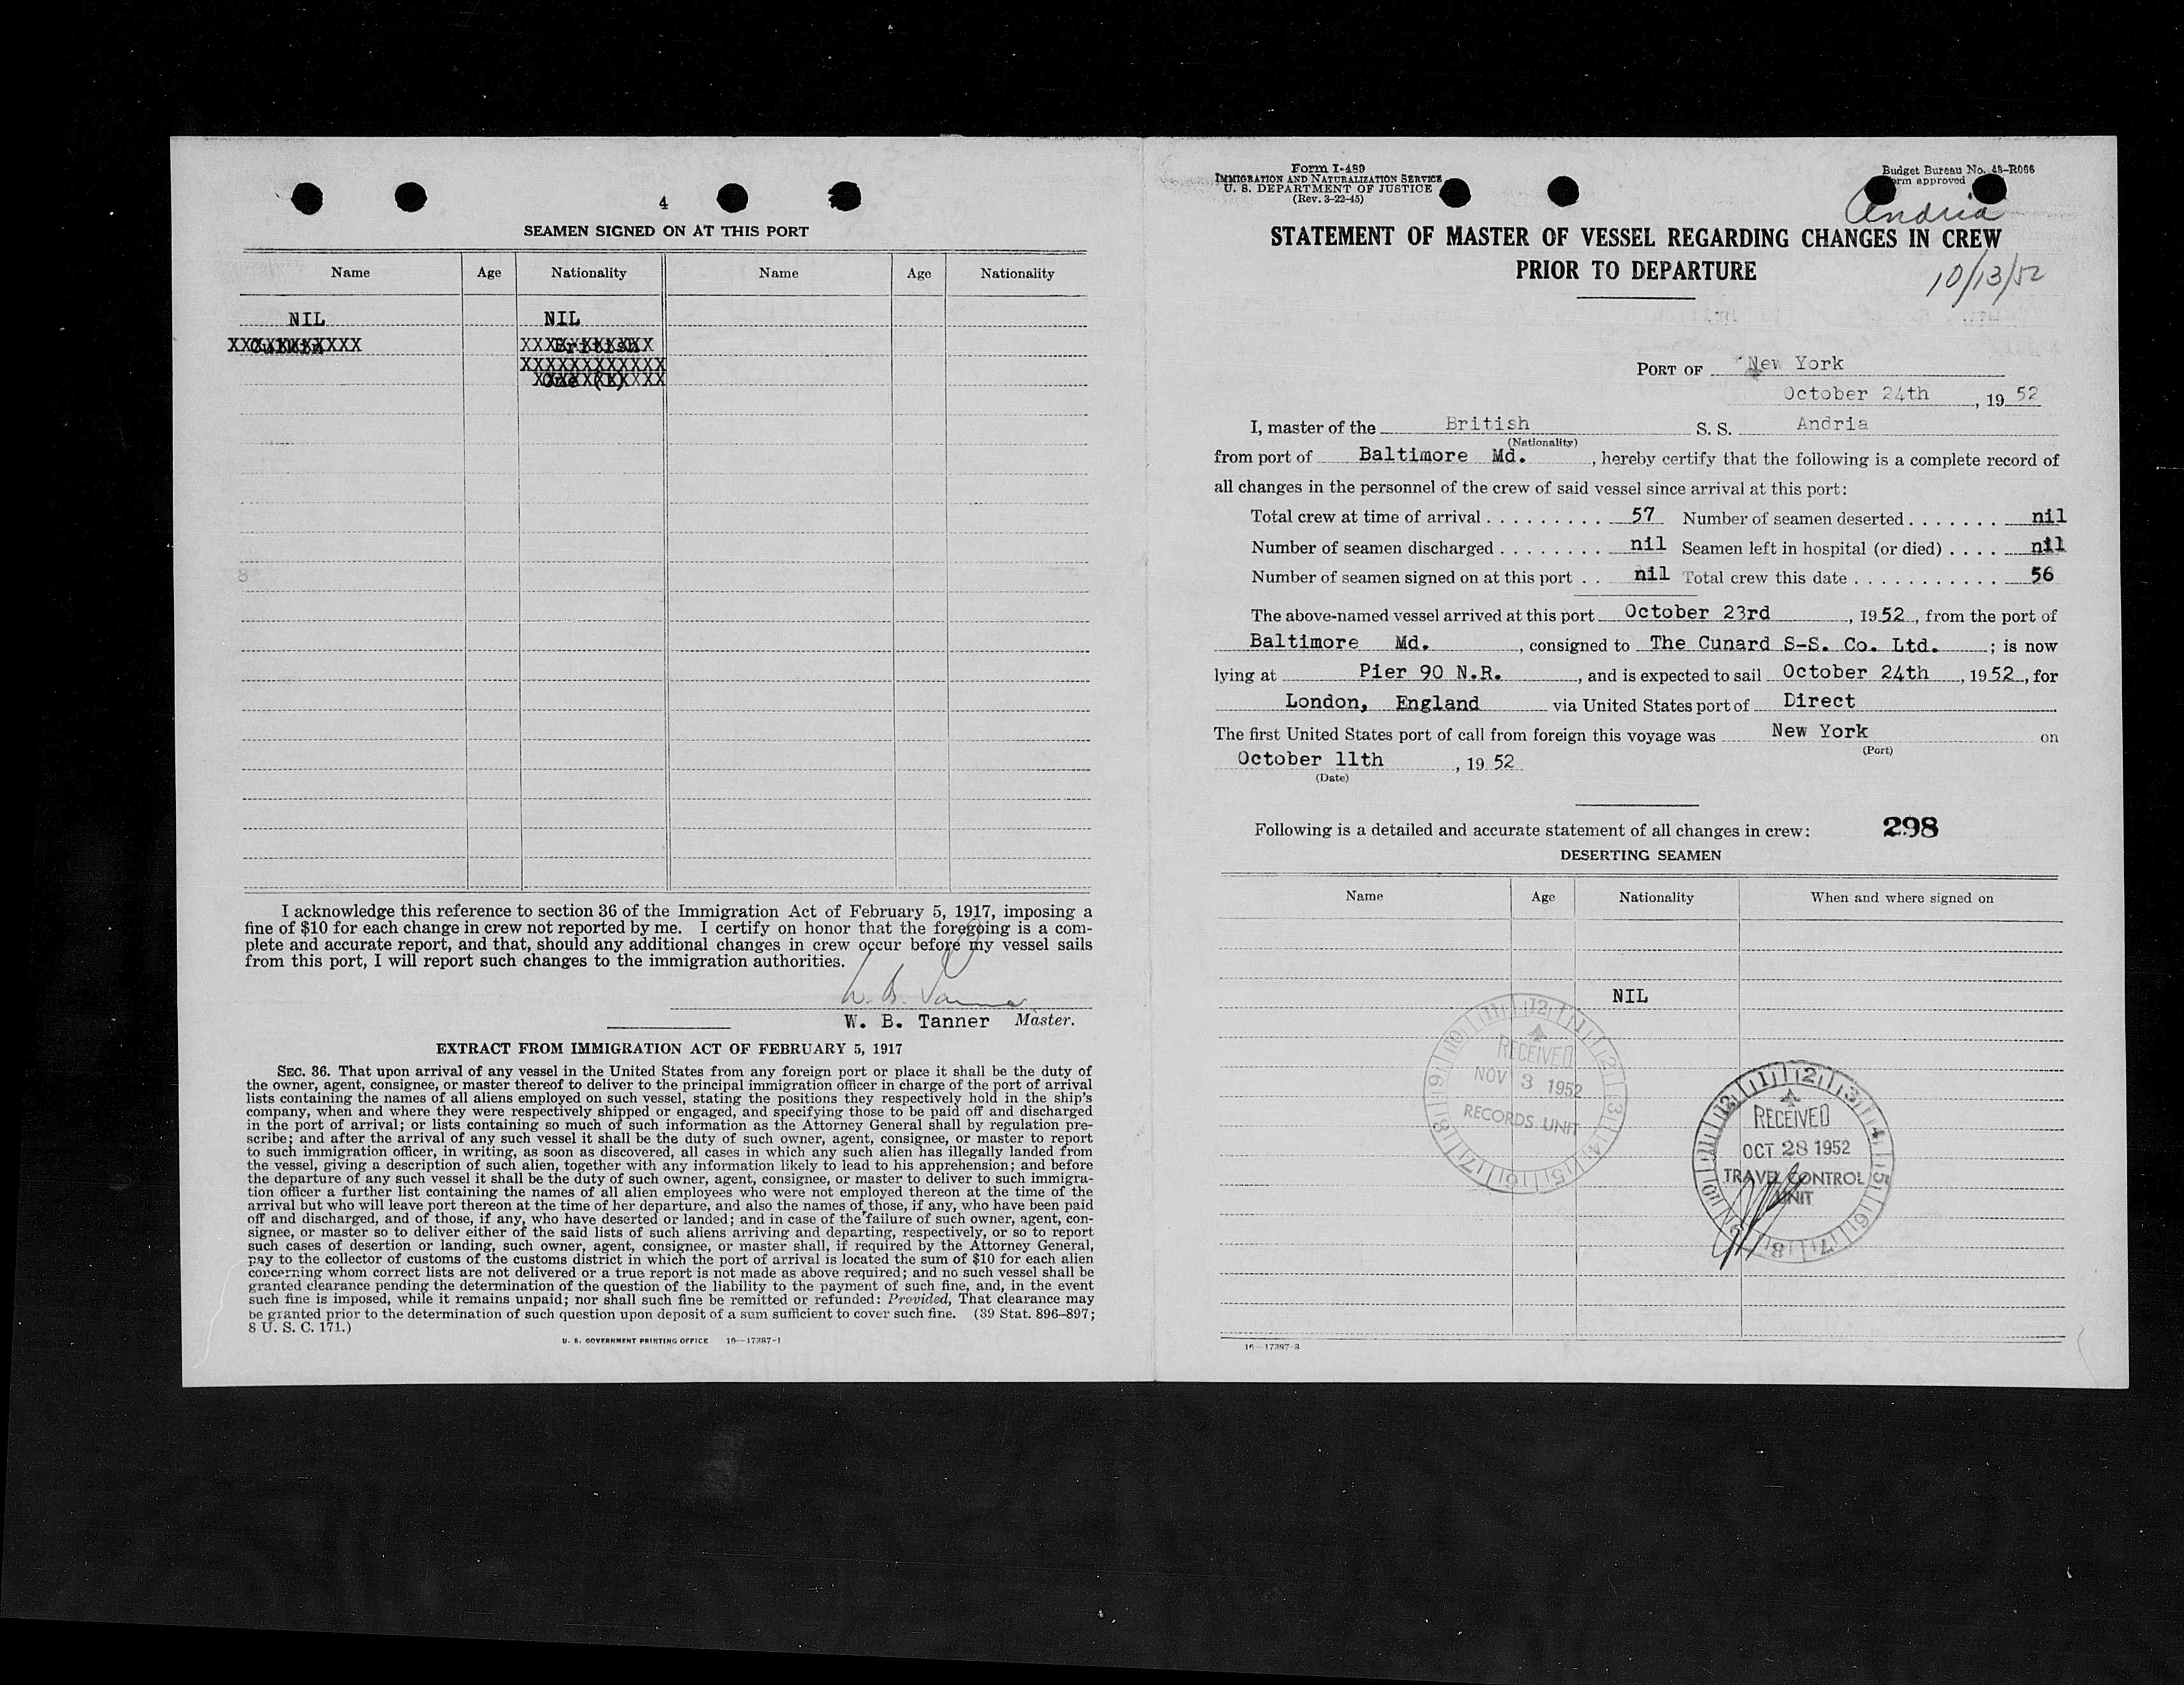 4
SEAMEN SIGNED ON AT THIS PORT
Name Age Nationality Name Age Nationality
NIL NIL
British
One (1)
I acknowledge this reference to section 36 of the Immigration Act of February 5, 1917, imposing a
fine of $10 for each change in crew not reported by me. I certify on honor that the foregoing is a com-
plete and accurate report, and that, should any additional changes in crew occur before my vessel sails
from this port, I will report such changes to the immigration authorities.
W. B. Tanner
W. B. Tanner Master.
EXTRACT FROM IMMIGRATION ACT OF FEBRUARY 5, 1917
SEC. 36. That upon arrival of any vessel in the United States from any foreign port or place it shall be the duty of
the owner, agent, consignee, or master thereof to deliver to the principal immigration officer in charge of the port of arrival
lists containing the names of all aliens employed on such vessel, stating the positions they respectively hold in the ship's
company, when and where they were respectively shipped or engaged, and specifying those to be paid off and discharged
in the port of arrival; or lists containing so much of such information as the Attorney General shall by regulation pre-
scribe; and after the arrival of any such vessel it shall be the duty of such owner, agent, consignee, or master to report
to such immigration officer, in writing, as soon as discovered, all cases in which any such alien has illegally landed from
the vessel, giving a description of such alien, together with any information likely to lead to his apprehension; and before
the departure of any such vessel it shall be the duty of such owner, agent, consignee, or master to deliver to such immigra-
tion officer a further list containing the names of all alien employees who were not employed thereon at the time of the
arrival but who will leave port thereon at the time of her departure, and also the names of those, if any, who have been paid
off and discharged, and of those, if any, who have deserted or landed; and in case of the failure of such owner, agent, con-
signee, or master so to deliver either of the said lists of such aliens arriving and departing, respectively, or so to report
such cases of desertion or landing, such owner, agent, consignee, or master shall, if required by the Attorney General,
pay to the collector of customs of the customs district in which the port of arrival is located the sum of $10 for each alien
concerning whom correct lists are not delivered or a true report is not made as above required; and no such vessel shall be
granted clearance pending the determination of the question of the liability to the payment of such fine, and, in the event
such fine is imposed, while it remains unpaid; nor shall such fine be remitted or refunded: Provided, That clearance may
be granted prior to the determination of such question upon deposit of a sum sufficient to cover such fine. (39 Stat. 896–897;
8 U. S. C. 171.)
U. S. GOVERNMENT PRINTING OFFICE 16—17387-1
Form I-489
IMMIGRATION AND NATURALIZATION SERVICE
U. S. DEPARTMENT OF JUSTICE
(Rev. 3-22-45)
Budget Bureau No. 43-R066
orm approved
Andria
STATEMENT OF MASTER OF VESSEL REGARDING CHANGES IN CREW
PRIOR TO DEPARTURE
10/13/52
PORT OF New York
October 24th, 19 52
I, master of the British S. S. Andria
(Nationality)
from port of Baltimore Md., hereby certify that the following is a complete record of
all changes in the personnel of the crew of said vessel since arrival at this port:
Total crew at time of arrival . . . . . . . . . 57 Number of seamen deserted . . . . . . . nil
Number of seamen discharged . . . . . . . . nil Seamen left in hospital (or died) . . . . nil
Number of seamen signed on at this port . . nil Total crew this date . . . . . . . . . . . . 56
The above-named vessel arrived at this port October 23rd, 19 52, from the port of
Baltimore Md., consigned to The Cunard S-S. Co. Ltd. ; is now
lying at Pier 90 N.R., and is expected to sail October 24th, 19 52, for
London, England via United States port of Direct
The first United States port of call from foreign this voyage was New York on
(Port)
October 11th, 19 52
(Date)
Following is a detailed and accurate statement of all changes in crew: 298
DESERTING SEAMEN
Name Age Nationality When and where signed on
NIL
RECEIVED
NOV 3 1952
RECORDS UNIT
RECEIVED
OCT 28 1952
TRAVEL CONTROL
UNIT
16—17387-3